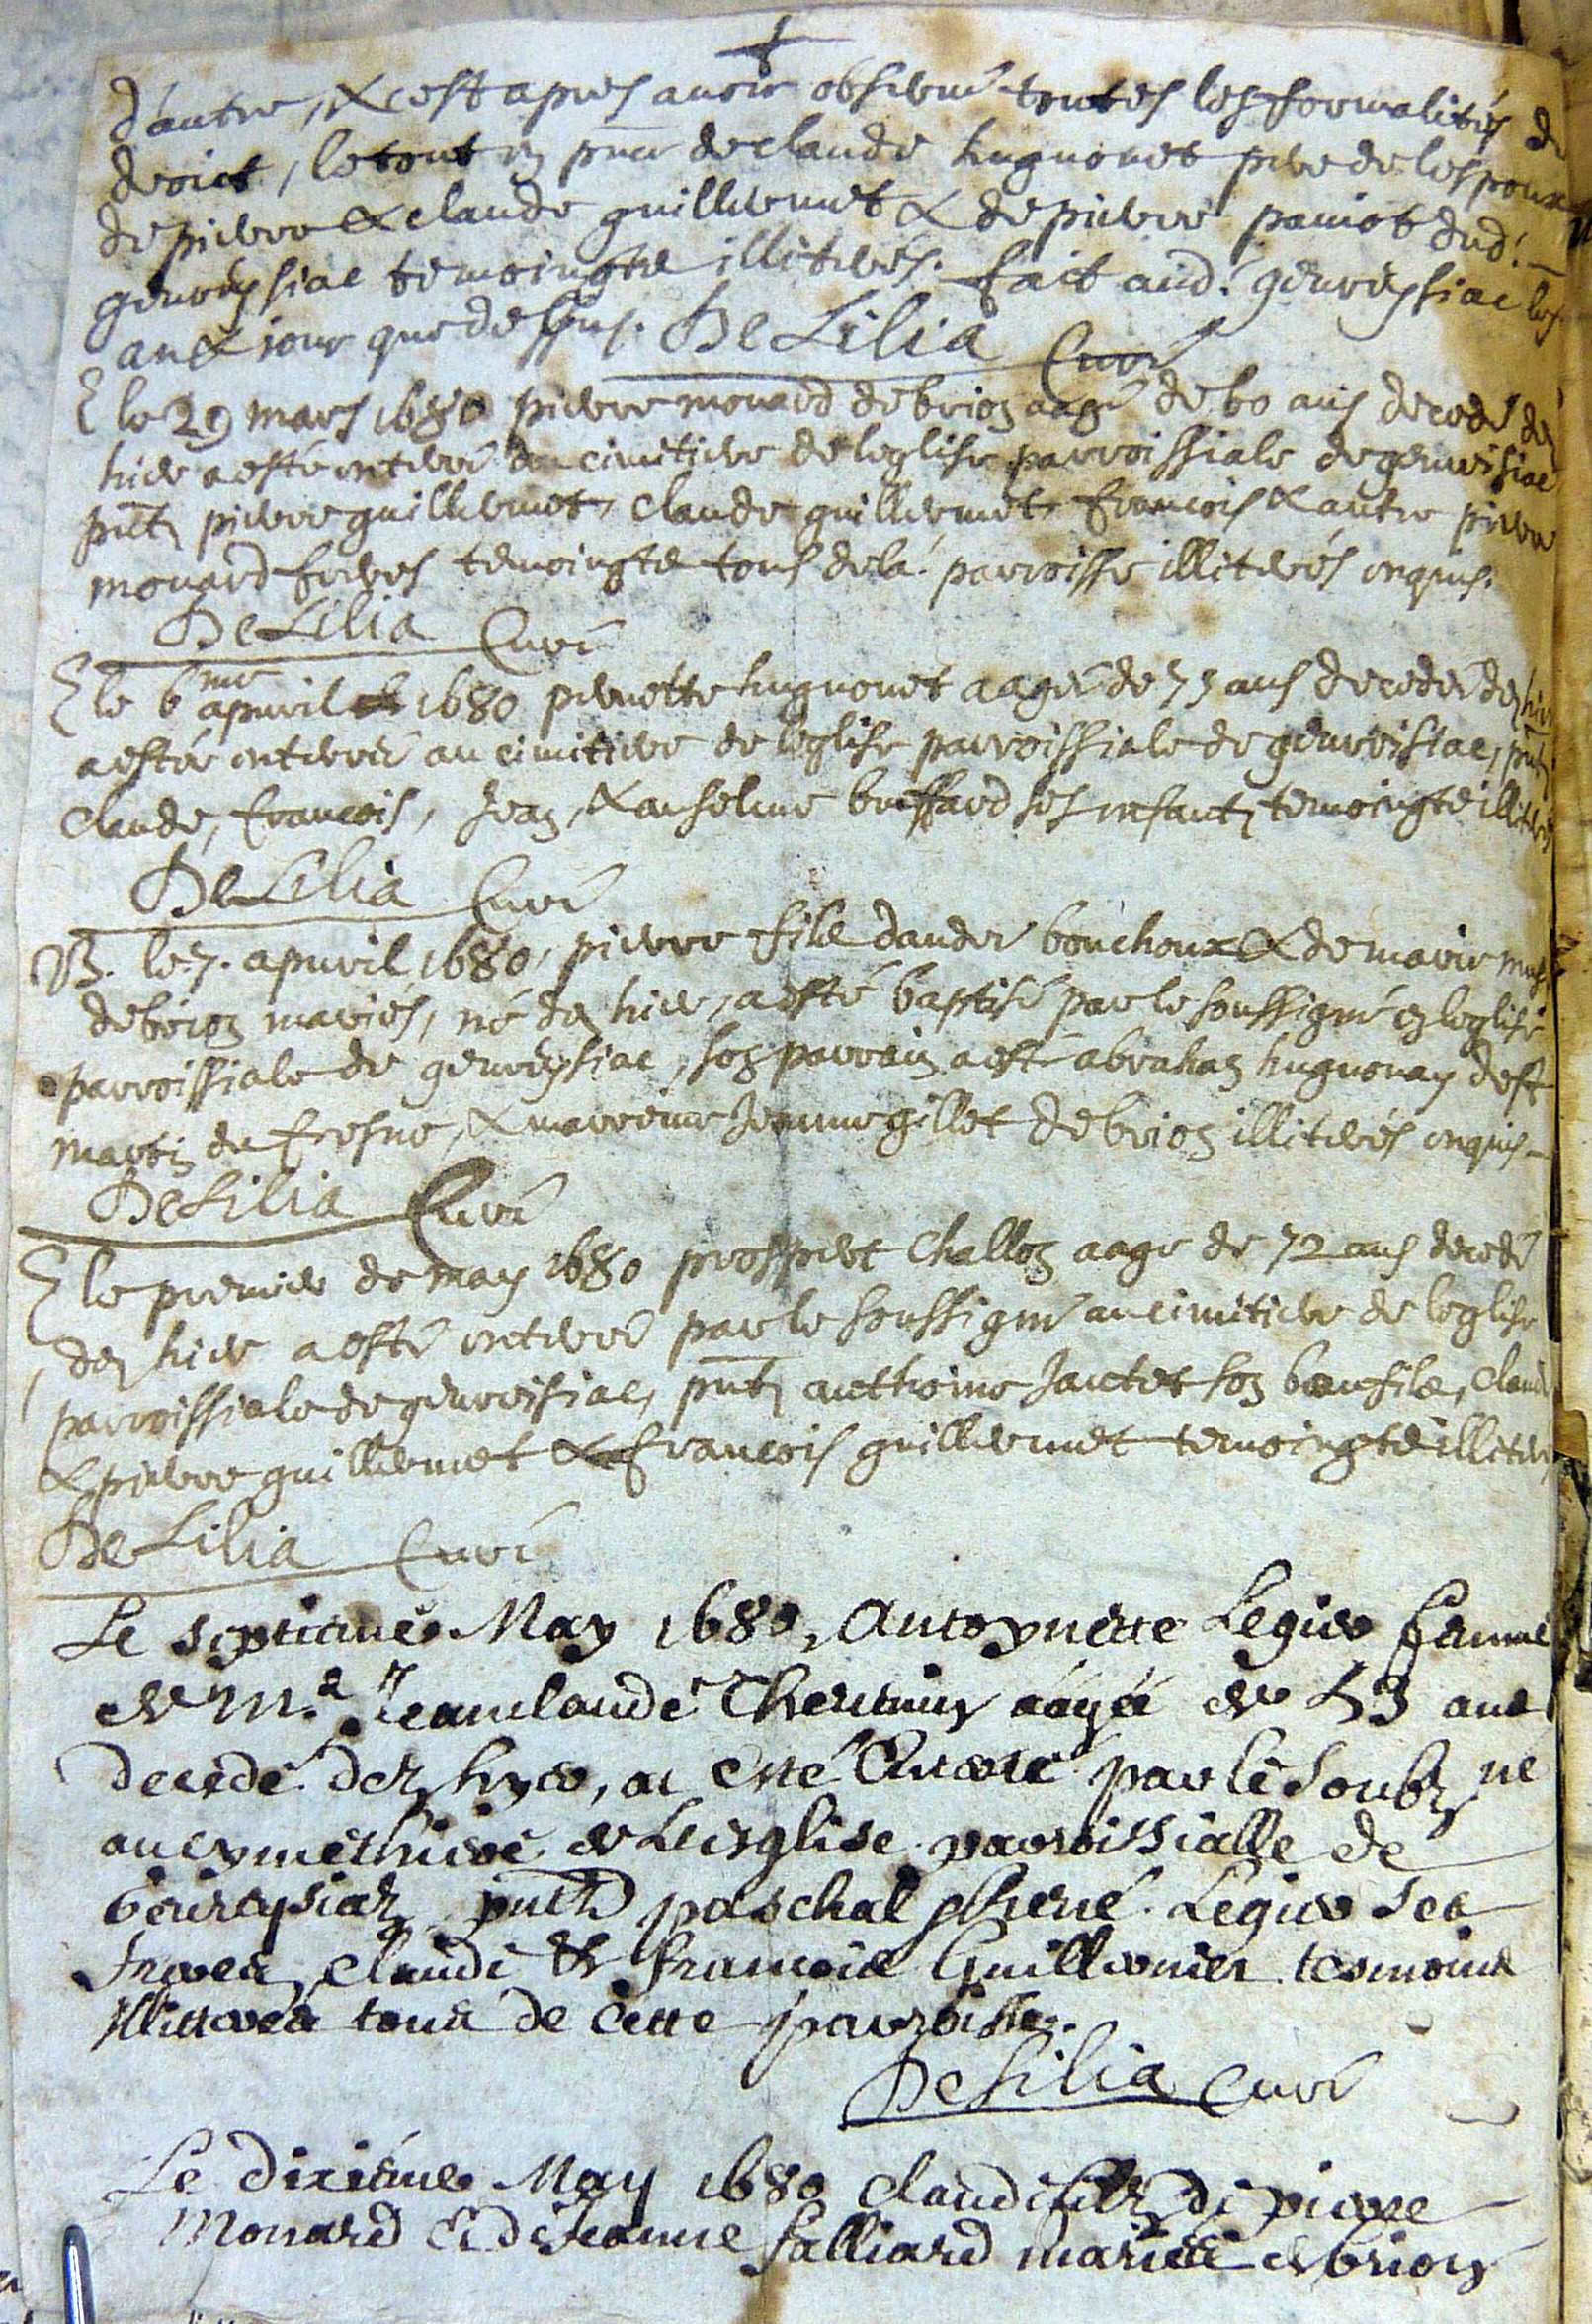 d'autre, & cest apres auoir obserué toutes les formalités de
droict, le tout en pnce de claude hugnonet pere de lespoux
de pierre & claude guillermet & de pierre paniot dud.
geureyssiac temoingts illiterés. fait aud. geureyssiac les
an & jour que dessus. De Lilia Curé
E le 29 mars 1680 pierre monard de brion aagé de 60 ans decedé dez
hier a esté enterré au cimitiere de leglise parroissiale de geureisiac
pntz pierre guillermet, claude guillermet françois & autre pierre
monard freres temoingts tous de la parroisse illiterés enquis.
De Lilia Curé
E le 6me apuril 1680 pernette hugnonet aagée de 75 ans decedée dez hier
a esté enterrée au cimitiere de leglise parroissiale de geureisiac, pntz
Claude, françois, Jean, & anselme buffard ses enfantz temoingts illiterés
De Lilia Curé
B. le 7. apuril 1680, pierre fils dandré bouchoux & de marie
de brion mariés, né dez hier, a esté baptisé par le soussigné en leglise
parroissiale de geureysiac, son parrain a esté abraham hugnonay de st
martin du fresne, & marreine Jeanne gillet de brion illiterés enquis
De Lilia Curé
E le premier de may 1680 prospert Challon aagé de 72 ans decedé
dez hier a esté enterré par le soussigné au cimitiere de leglise
parroissiale de geureisiac, pntz anthoine Jantet son beaufils, claude
& pierre guillermet & françois guillermet temoingts illiterés
De Lilia Curé
Le septieme May 1680, Antoynette Leguo femme
de Mr. Jeanclaude Thevenin aagée de 53 ans
decedé dez hyer, a esté Enterré par le Soubz né
au cymethiere de Lesglise parroissialle de
Geureysiaz pntz paschal & hené Leguo Ses
freres, claude & francois Guillermet tesmoins
Illitterés tous de cette parroisse.
De Lilia Curé
Le dixiéme May 1680 Claude filz de pierre
Monard Et de Jeanne falliard mariés de brion